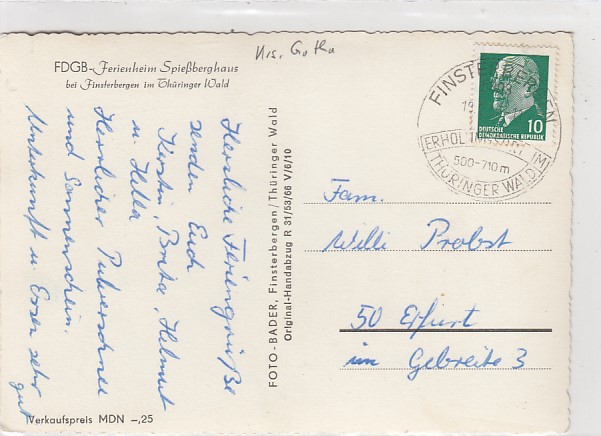 Krs. Gotha
FDGB-Ferienheim Spießberghaus
bei Finsterbergen im Thüringer Wald
Herzliche Feriengrüße
senden Euch
Kerstin, Britta, Helmut
u. Hella
Herrlicher Pulverschnee
und Sonnenschein.
Unterkunft u. Essen sehr
gut
Verkaufspreis MDN -,25
FOTO-BADER, Finsterbergen/Thüringer Wald
Original-Handabzug R 31/53/66 V/6/10
FINSTERBERGEN
ERHOL
500-710m
THÜRINGER WALD
DEUTSCHE
DEMOKRATISCHE REPUBLIK
10
Fam.
Willi Probst
50 Erfurt
im Gebreite 3